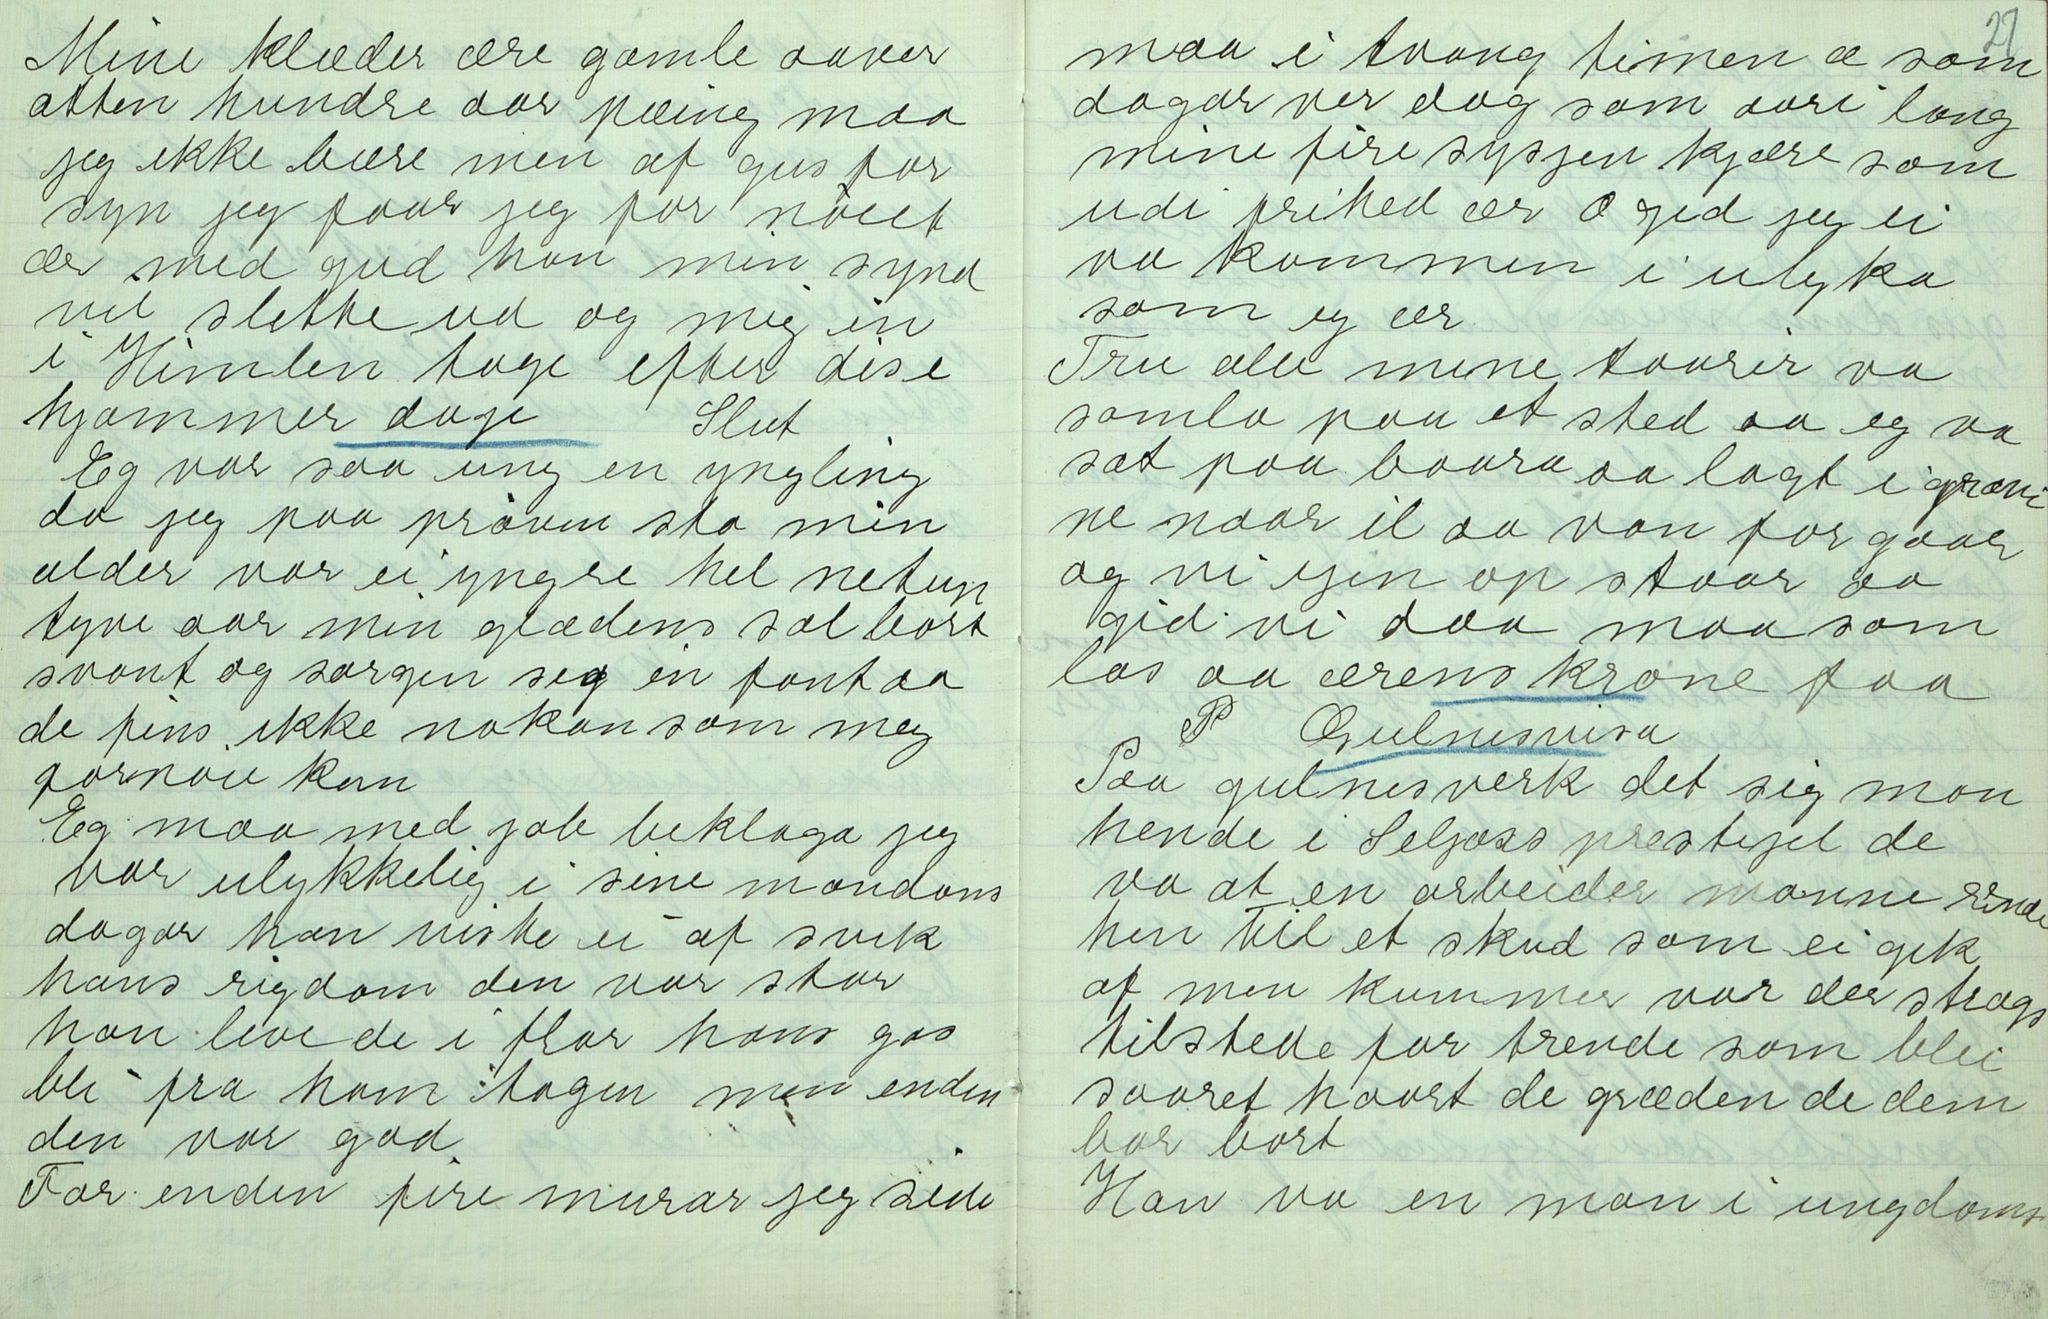 Mine klæder ære gamle aaver
atten hundre aar pæing maa
jeg ikke bære men af gus for
syn jeg faar jeg for nöiet
ær med gud han min synd
vil slette ud og mig in
i Himlen tage efter dise
hjammer daje Slut
Eg var saa ung en yngling
da jeg paa pröven sto min
alder var ei yngre hel netup
tyve aar min glædens sol bort
svant og sorgen seg in fant aa
de fins ikke nokon som meg
fornöie kan
Eg maa med job beklaga jeg
var ulykkelig i sine mandoms
dagar han viste ei af svik
hans rigdom den var stor
han leve de i flor hans gos
bli fra ham tagen men enden
den var god
For enden fire murar jeg side
27
maa i tvang timen æ som
dagar ver dag som aari lang
mine fire sysjen kjære som
udi frihed ær O gid jeg ei
va kommen i ulyka
som eg ær
Tru alle mine taarir va
samla paa et sted aa eg va
sat paa baara aa lagt i græni
ne naar il aa van for gaar
og vi ijen op staar aa
gid vi daa maa som
los aa ærens krone faa
P Gulnesvisa
Paa gulnesværk det sig mon
hende i Seljoss prestejel de
va at en arbeider monne rende
hen til et skud som ei gik
af men kummer var der strags
tilstede for trende som blei
saaret haart de græden de dem
bar bort
Han va en man i ungdoms